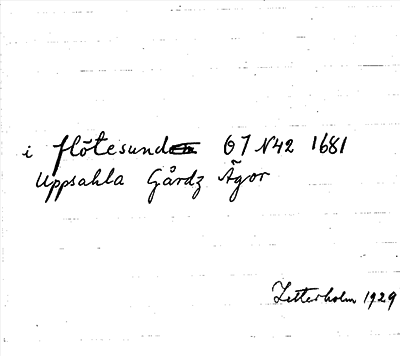 i flötesund G7 N42 1681
Uppsahla Gårdz Ägor
Zetterholm 1929